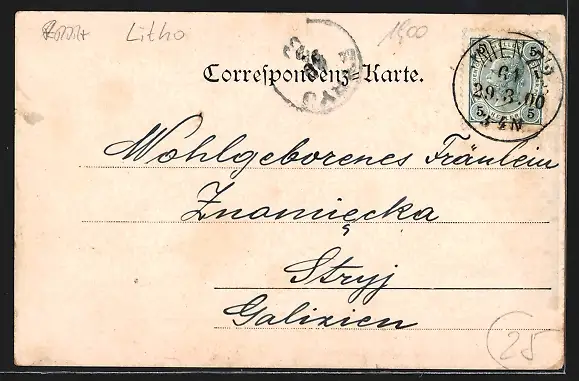 Litho
1900
Correspondenz-Karte.
WIEN
29.3.00
5
5
5
Wohlgeborenes Fräulein
Znamięcka
Stryj
Galizien
25